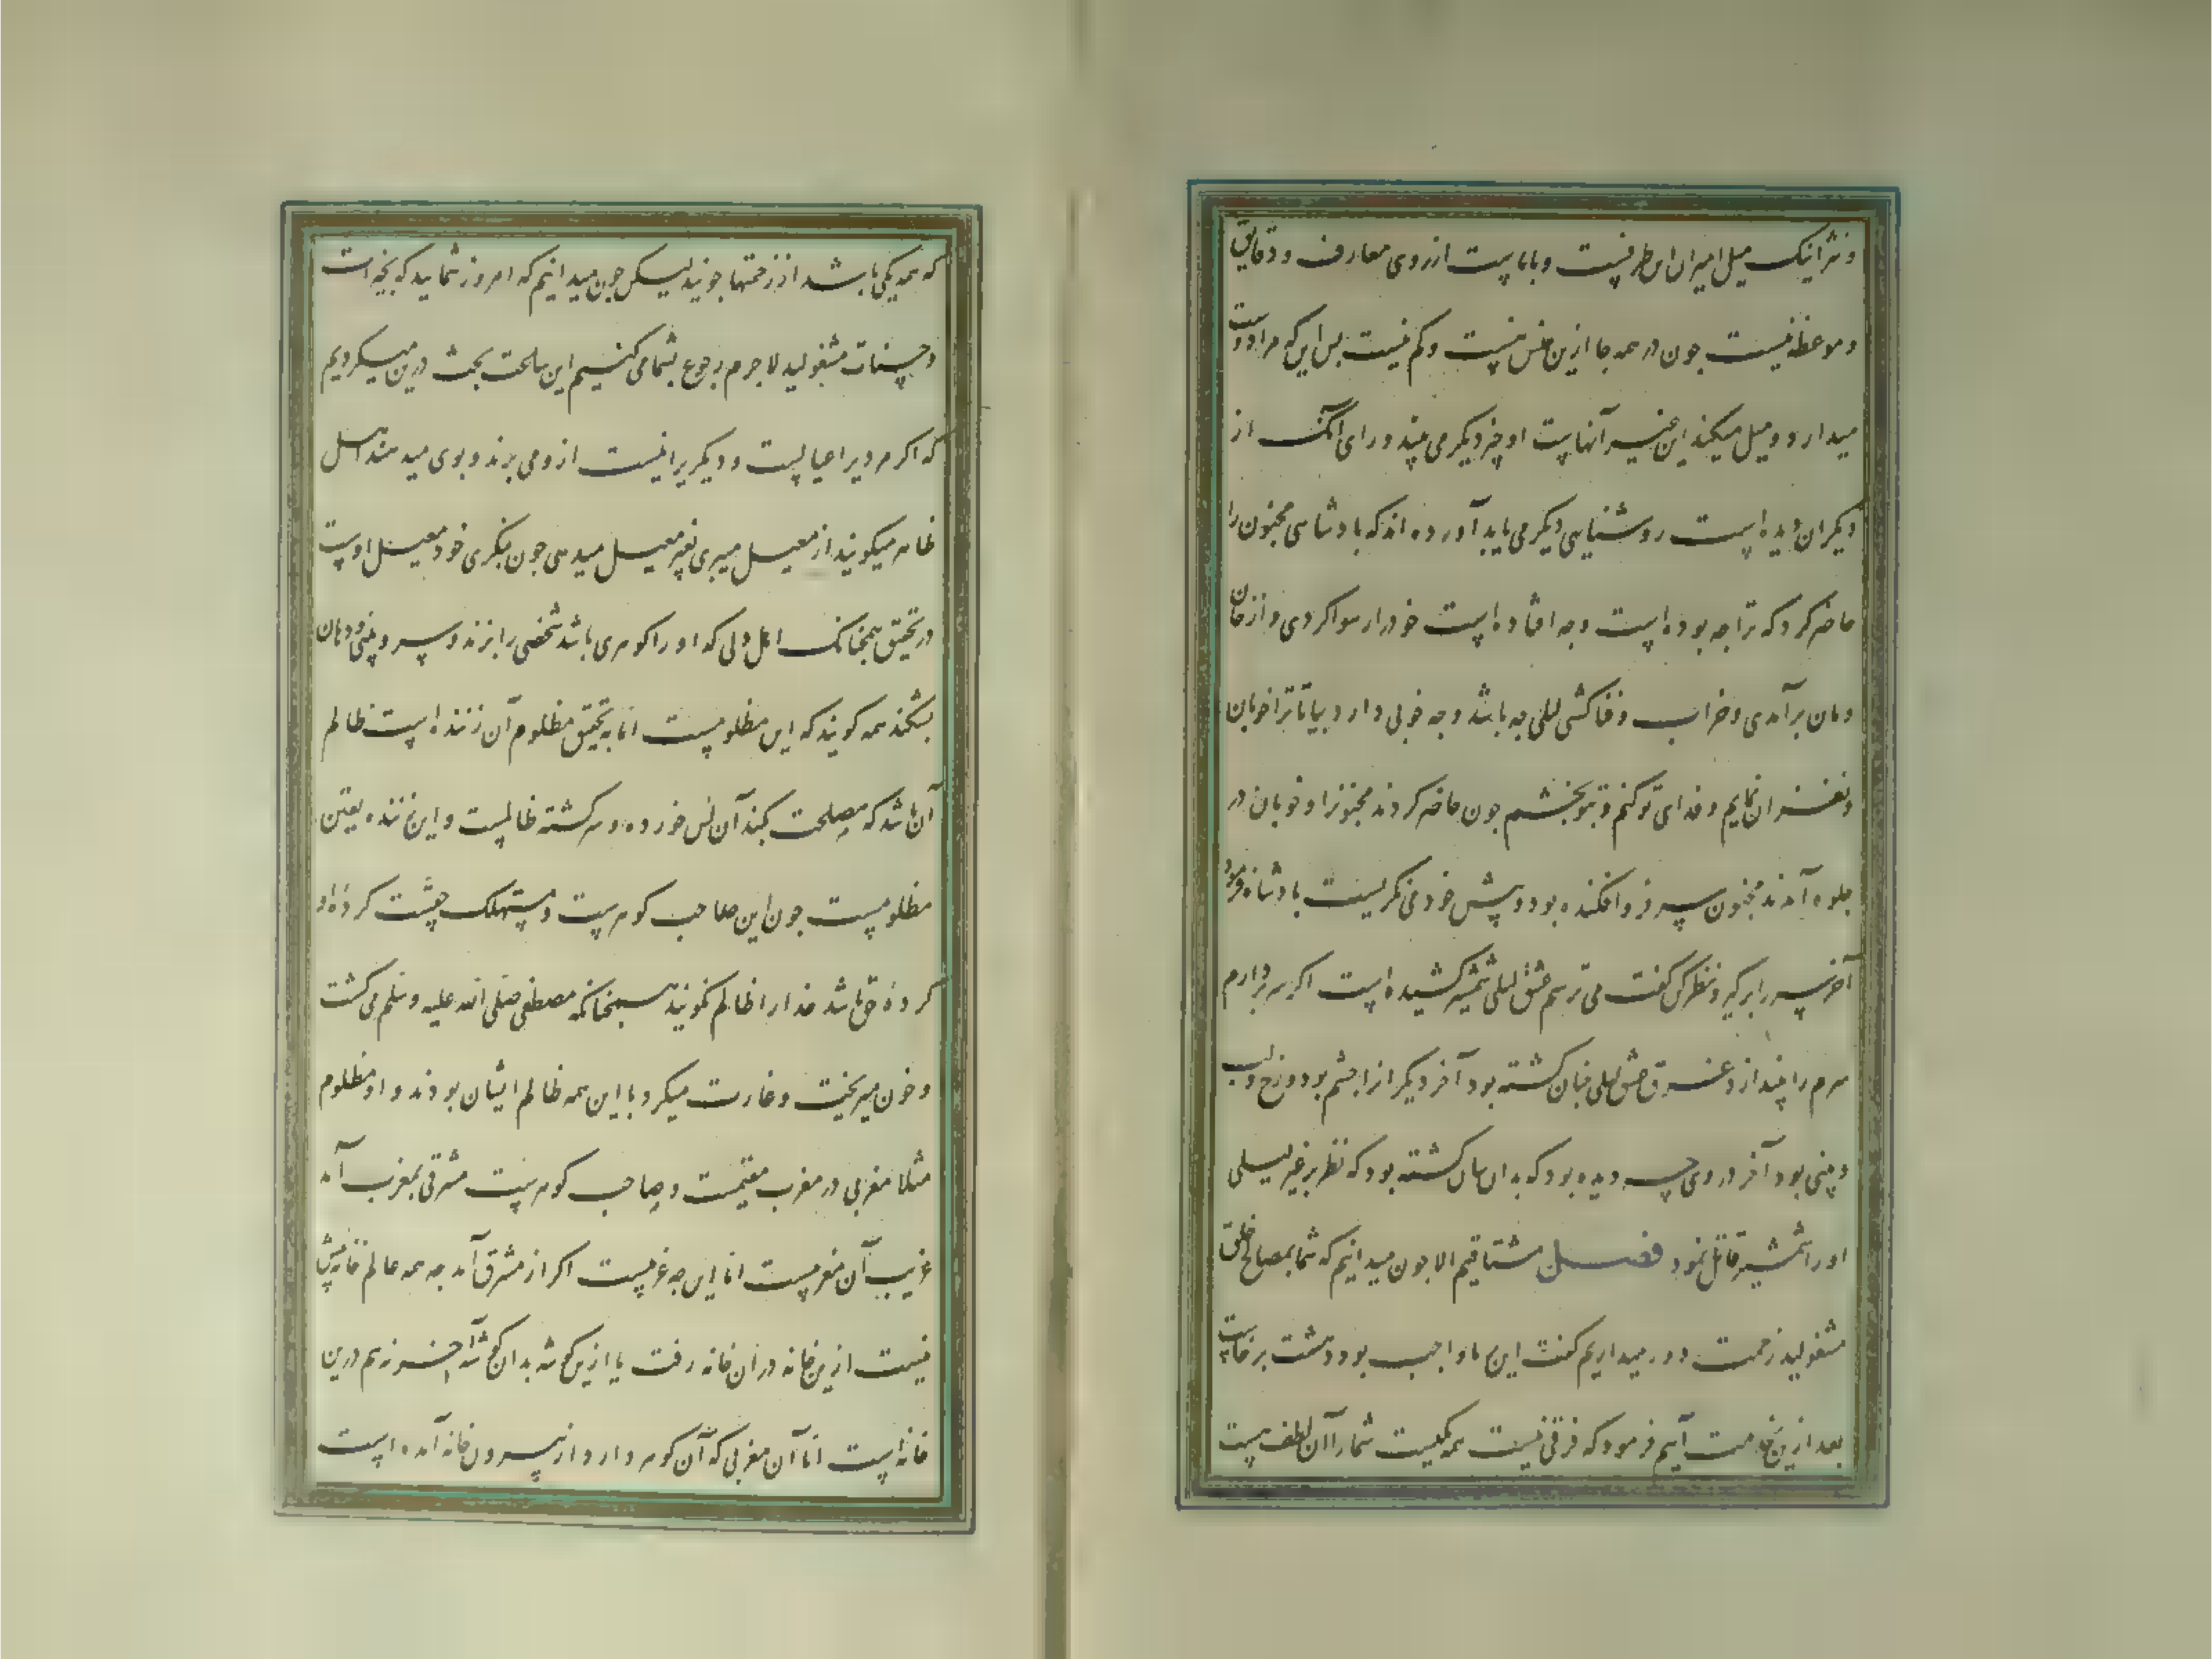 و نثر اینک میل امیران این طرفست و با ماست از روی معارف و دقایق
و موعظه نیست چون در همه جا ازین جنس هست و کم نیست پس این که مرا دوست
میدارد و میل میکند این غیر آنهاست او چیز دیگر می بیند ورای آنک از
دیگران دیده است روشنایی دیگر می یابد آورده اند که پادشاهی مجنون را
حاضر کرد که ترا چه بوده است و چه افتاده است خود را رسوا کردی و از خان
و مان برآمدی و خراب و فنا کشتی لیلی چه باشد و چه خوبی دارد بیا تا ترا خوبان
و نغزان نمایم و فدای تو کنم و بتو بخشم چون حاضر کردند مجنونرا و خوبان در
جلوه آمدند مجنون سر فرو افکنده بود و پیش خود می نکریست پادشاه فرمود
آخر سر را برکیر و نظر کن کفت می ترسم عشق لیلی شمشیر کشیده است اکر سر بردارم
سرم را بیندازد غرق عشق لیلی چنان کشته بود آخر دیکر انرا چشم بود و زخ و لب
و بینی بود آخر در وی چه دیده بود که بدان سان کشته بود که نظر بر غیر لیلی
او را شمشیر قاتل نمود فصل مشتاقیم الا چون میدانیم که شما بمصالح خلق
مشغولید زحمت دور میداریم کفت این بر ما واجب بود دهشت برخاست
بعد ازین بخدمت آییم فرمود که فرقی نیست همه یکیست شما را آن لطف هست
که همه یکی باشد از زحمتها چونید لیکن چون میدانیم که امروز شمایید که بخیرات
و حسنات مشغولید لاجرم رجوع بشما می کنیم این ساعت بحث درین میکردیم
که اکر مردیرا عیالست و دیکریرا نیست ازو می برند و بوی میدهند اهل
ظاهر میکویند از معیل میبری بغیر معیل میدهی چون بنکری خود معیل اوست
در تحقیق همچنانک اهل دلی که او را کوهری باشد شخصی را بزند و سر و بینی و دهان
بشکند همه کویند که این مظلومست اما به تحقیق مظلوم آن زننده است ظالم
آن باشد که مصلحت نکند آن لس خورده و سر کشته ظالمست و این زننده یقین
مظلومست چون این صاحب کوهرست و مستهلک حقست کرده او
کرده حق باشد خدا را ظالم نکویند همچنانکه مصطفی صلی الله علیه و سلم می کشت
و خون میریخت و غارت میکرد با این همه ظالم ایشان بودند و او مظلوم
مثلا مغربی در مغرب مقیمست و صاحب کوهرست مشرقی بمغرب آمد
غریب آن مغربیست اما این چه غریبست اکر از مشرق آمد چه همه عالم خانه بیش
نیست ازین خانه در آن خانه رفت یا ازین کوشه بدان کوشه آخر نه هم درین
خانه است اما آن مغربی که آن کوهر دارد از بیرون خانه آمده است